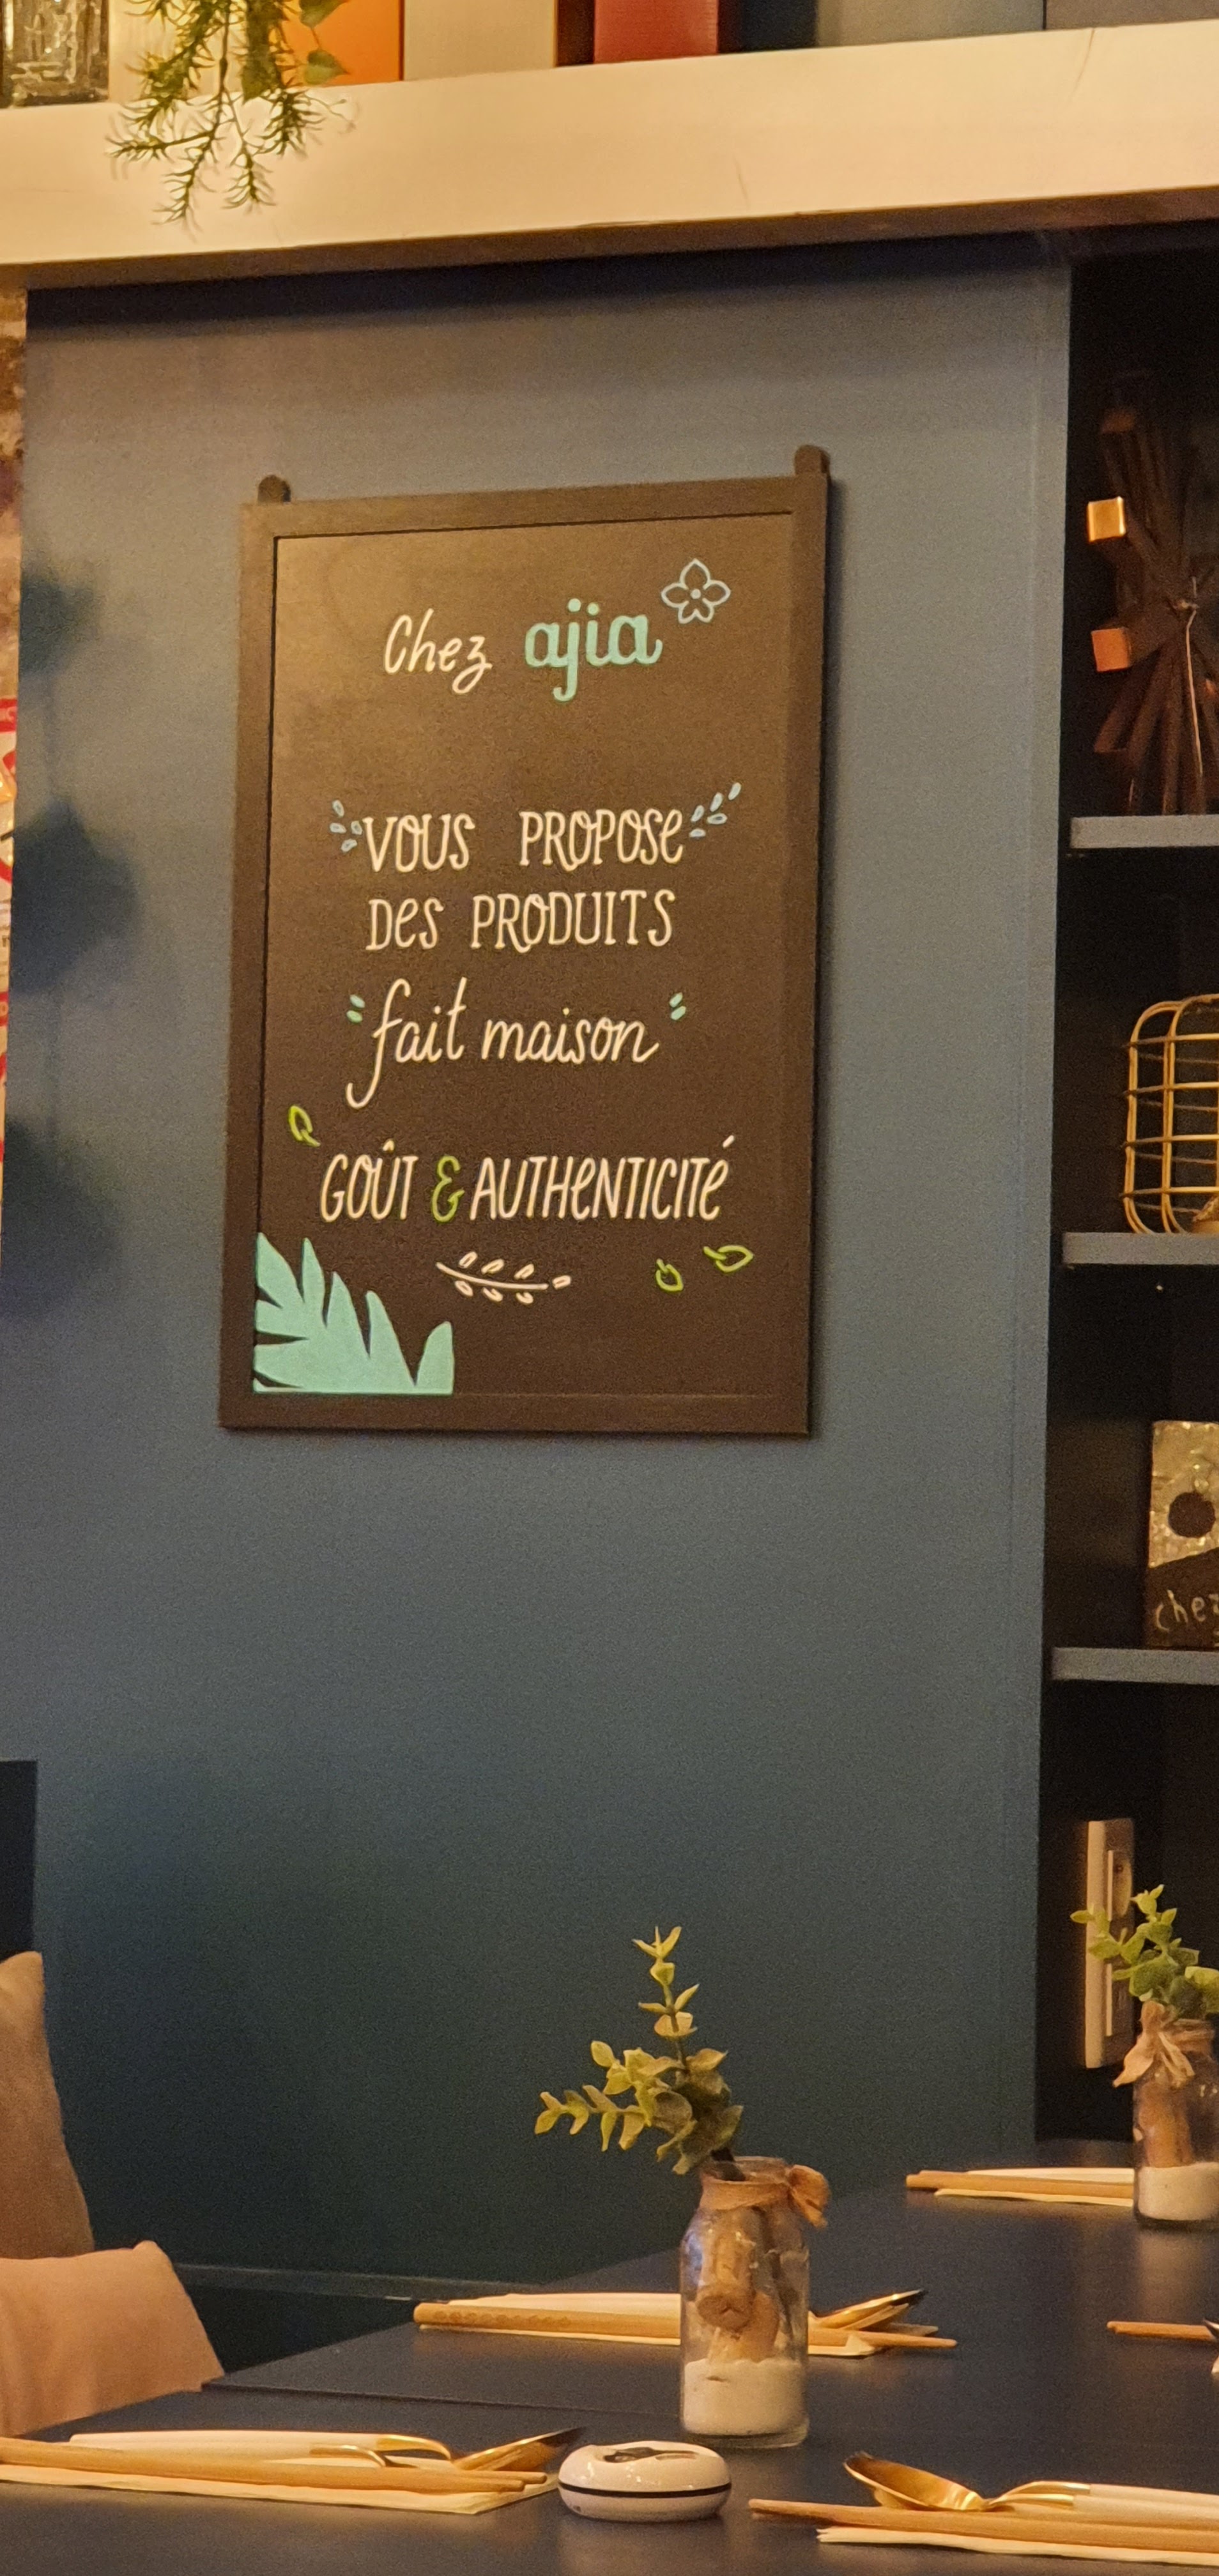 Chez ajia
VOUS PROPOSE
DES PRODUITS
fait maison
GOÛT & AUTHENTICITÉ
chez